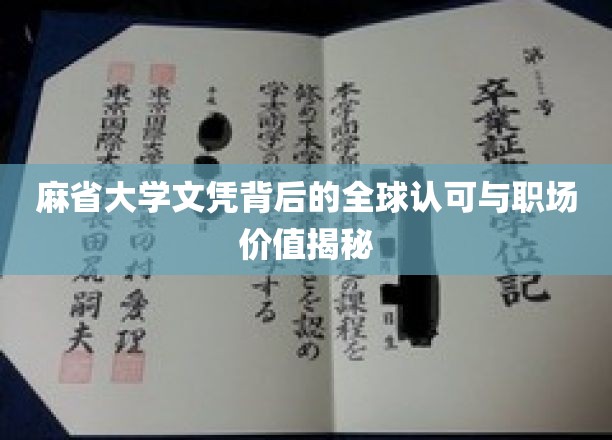 麻省大学文凭背后的全球认可与职场
价值揭秘
第 号
卒業証書 学位記
日生
本学商学部 定の課程を
修めて本学 ことを認め
学士(商学)の学 する
平成
東京国際大学 村愛理
東京国際大学長田尻嗣夫